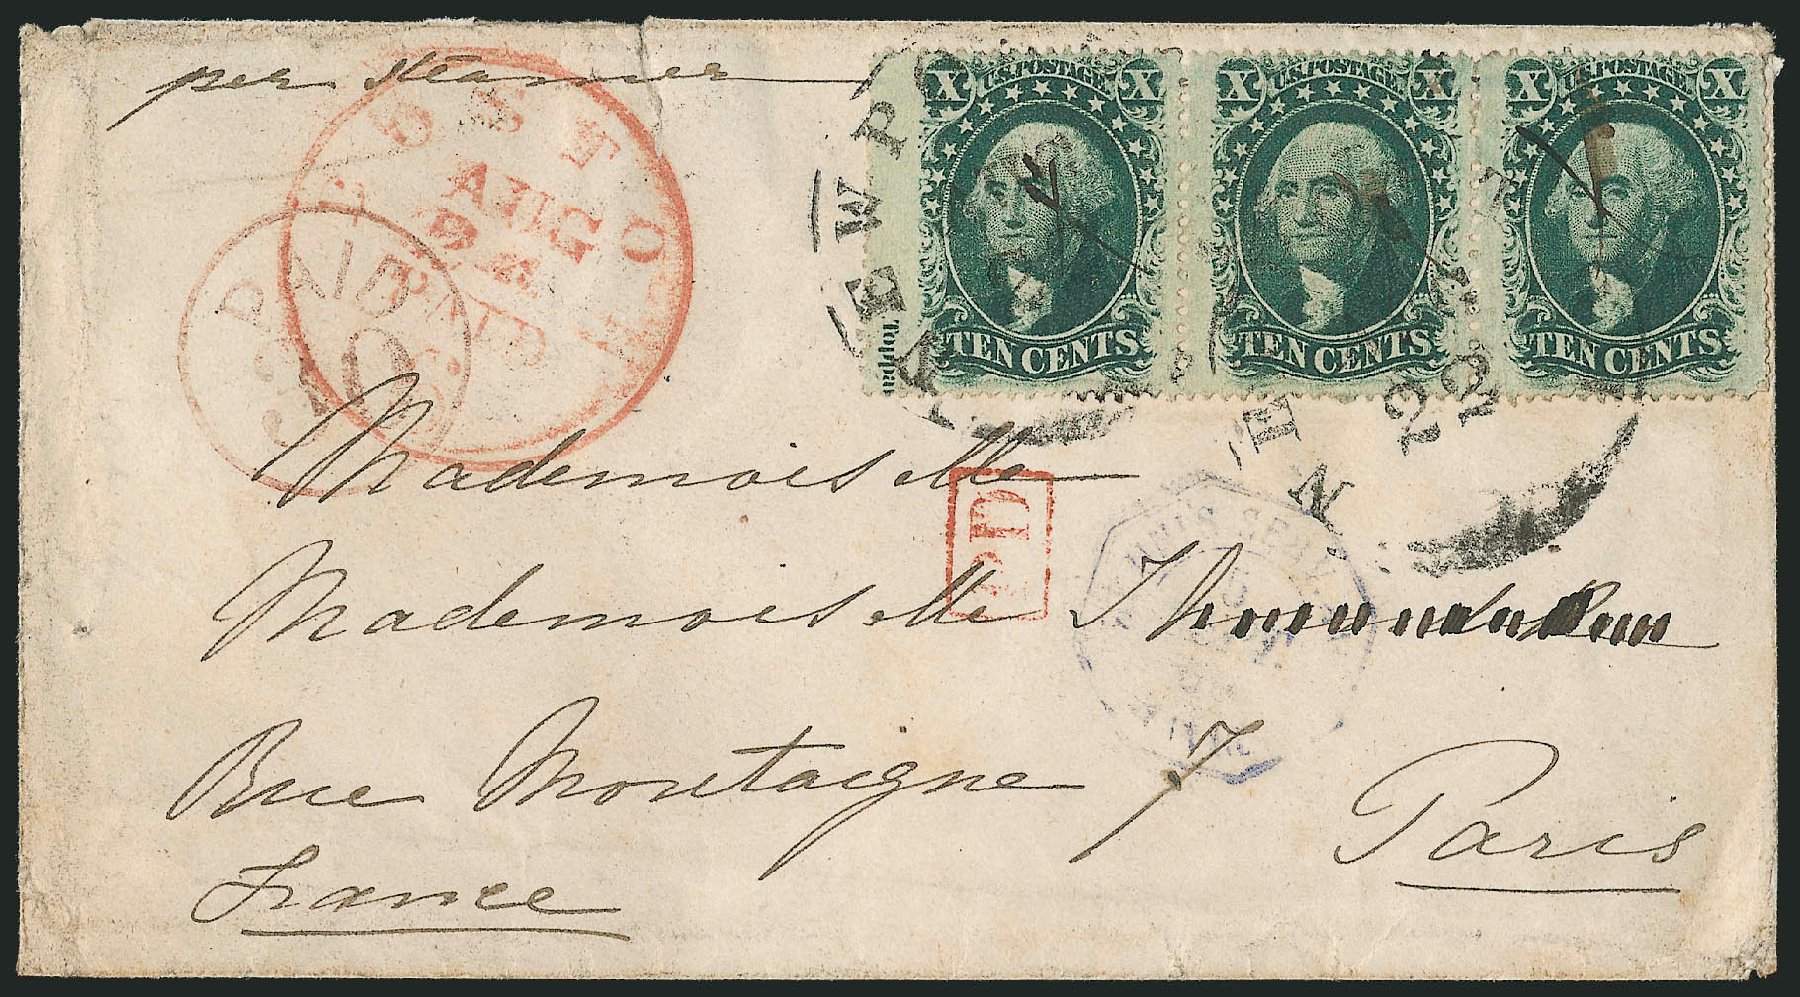 per steamer
X U.S. POSTAGE X
TEN CENTS
X U.S. POSTAGE X
TEN CENTS
X U.S. POSTAGE X
TEN CENTS
Toppan
NEWPO
NEWP
22
BOSTON
AUG
24
PAID
PAID
30
PD
Mademoiselle
Mademoiselle
Rue Montaigne 7
Paris
France